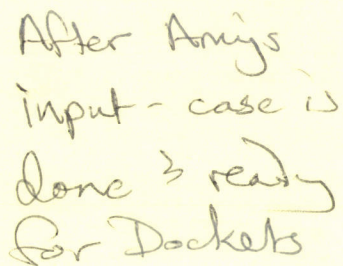 After Amys
input - case is
done & ready
for Dockets